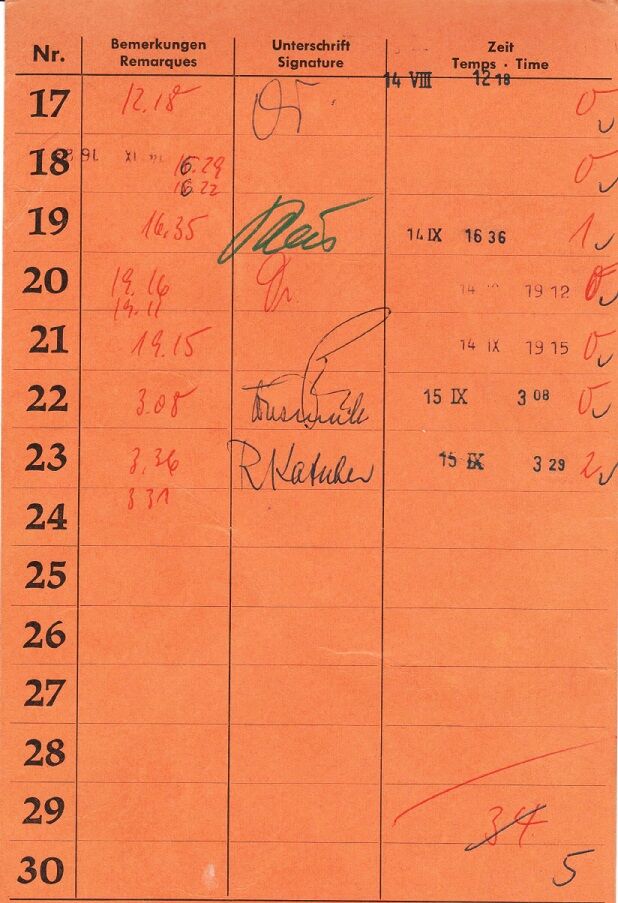 Nr. Bemerkungen Unterschrift Zeit
Remarques Signature Temps · Time
14 VIII 12 18
17 12.18 0
18 16.29 0
16.22
19 16.35 14 IX 16 36 1
20 19.16 14 19 12 0
19.11
21 19.15 14 IX 19 15 0
22 3.08 15 IX 3 08 0
23 3,36 15 IX 3 29 2
3 31
24
25
26
27
28
29 34
30 5